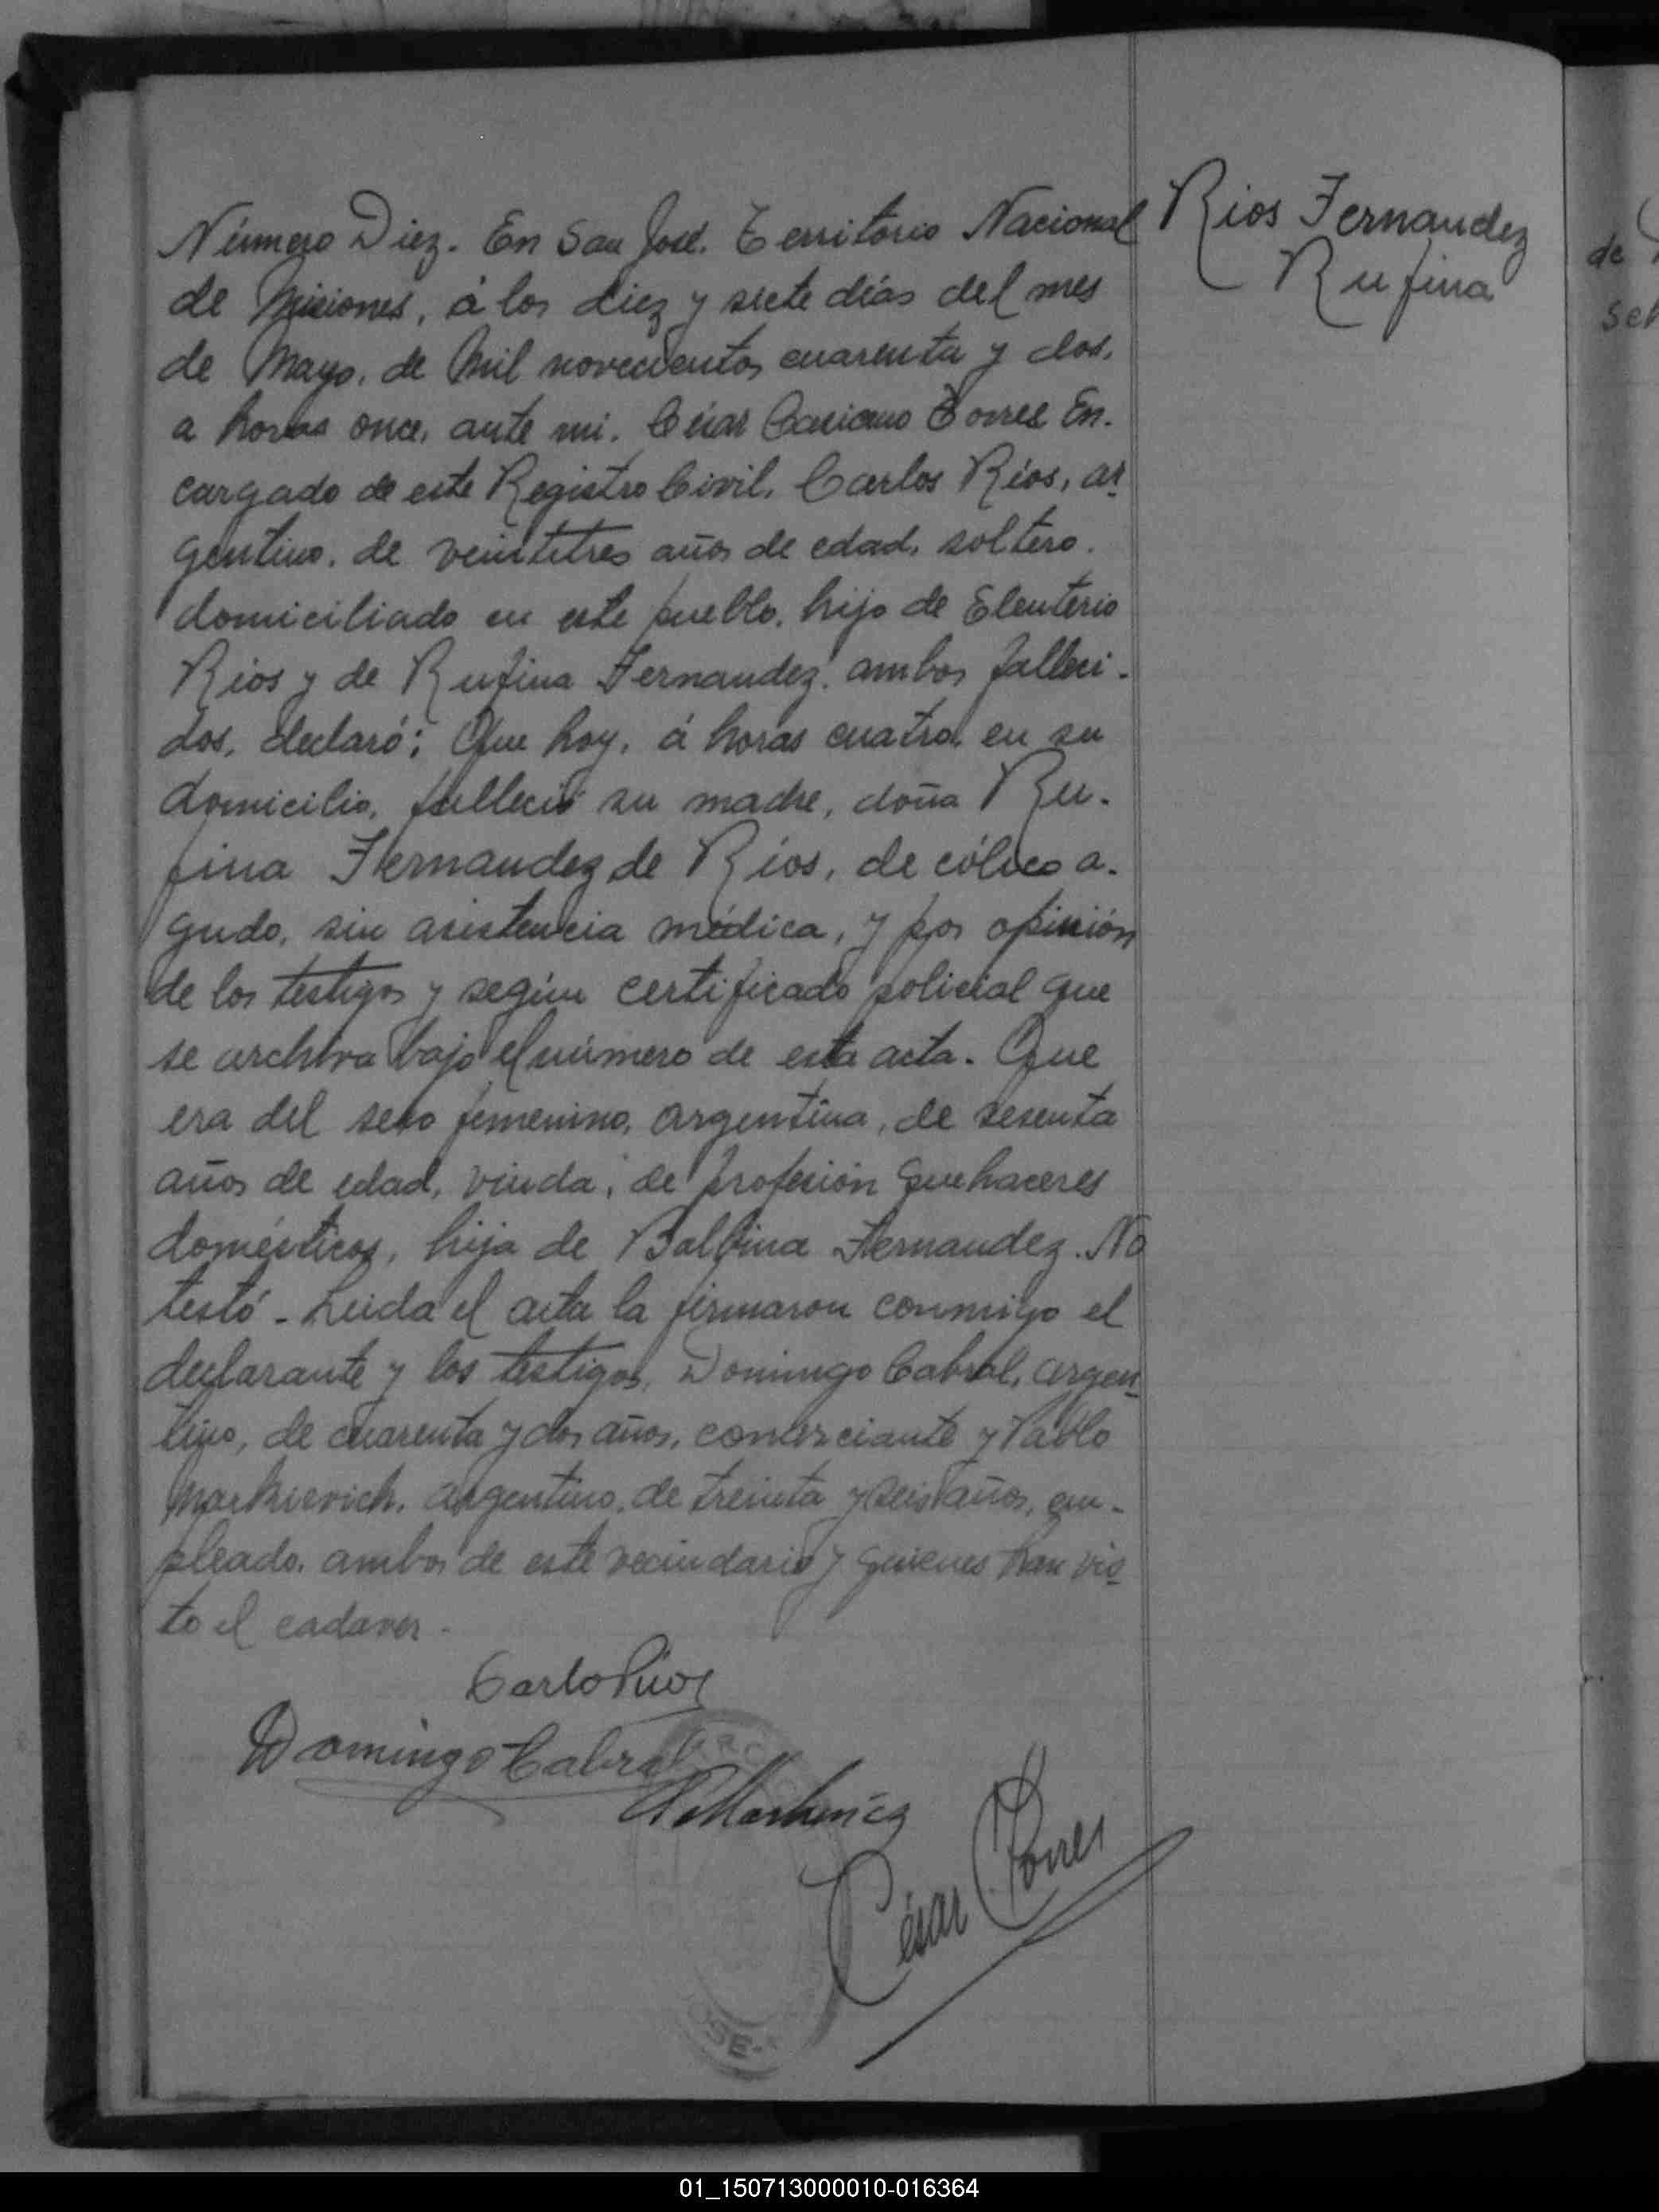 Rios Fernandez
Rufina
Número Diez. En San José. Territorio Nacional
de Misiones, á los diez y siete días del mes
de Mayo, de Mil novecientos cuarenta y dos,
a horas once, ante mi. César Casiano Torres En-
cargado de este Registro Civil, Carlos Ríos, ar-
gentino, de veintitres años de edad, soltero,
domiciliado en este pueblo, hijo de Eleuterio
Rios y de Rufina Fernandez, ambos falleci-
dos, declaró: Que hoy, á horas cuatro, en su
domicilio, falleció su madre, doña Ru-
fina Fernandez de Ríos, de cólico a-
gudo, sin asistencia médica, y por opinión
de los testigos y según certificado policial que
se archiva bajo el número de esta acta. Que
era del sexo femenino, argentina, de sesenta
años de edad, viuda, de profesión quehaceres
domésticos, hija de Balbina Fernandez. No
testó - Leida el acta la firmaron conmigo el
declarante y los testigos, Domingo Cabral, argen-
tino, de cuarenta y dos años, comerciante y Pablo
Markievich, argentino, de treinta y seis años, em-
pleado, ambos de este vecindario y quienes han vis-
to el cadaver.
Carlo Rios
Domingo Cabral
César Torres
OSE
de
01_150713000010-016364